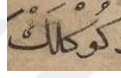 كوكلك